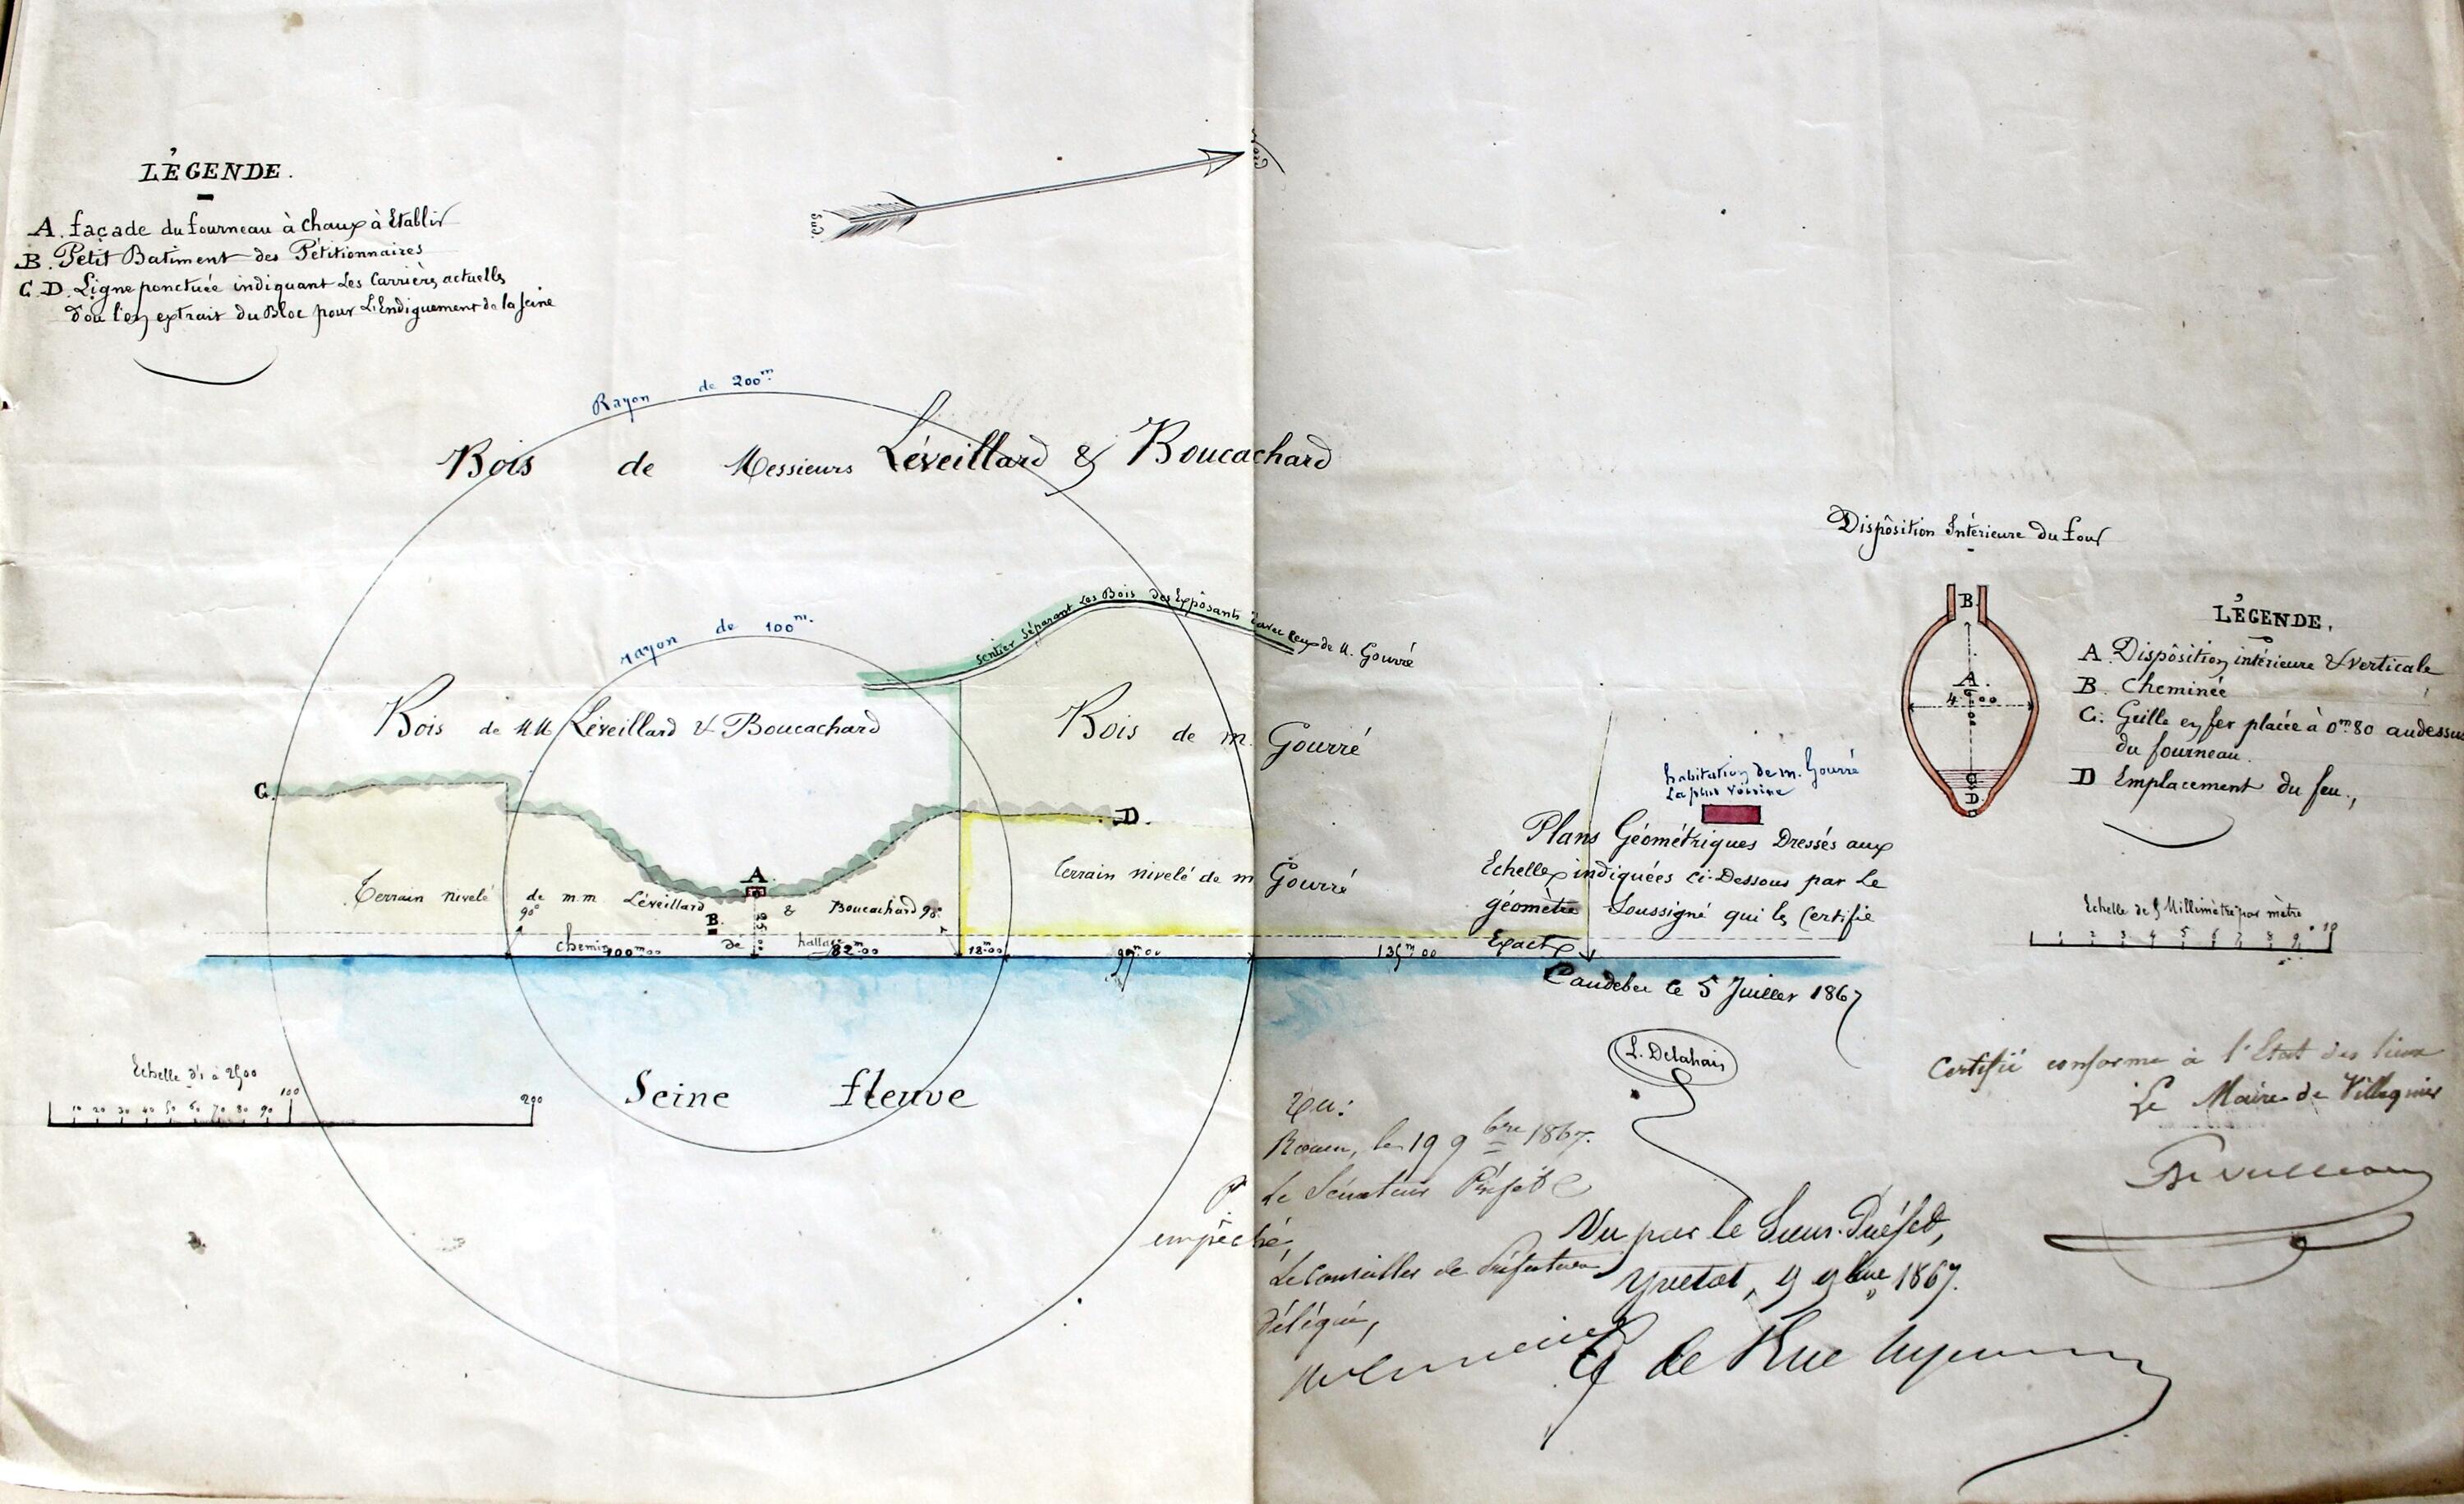 LÉGENDE.
A. façade du fourneau à chaux à Etablir
B. Petit Batiment des Pétitionnaires
C.D. Ligne ponctuée indiquant Les Carrières actuelles
d'ou l'on extrait du Bloc pour L'Endiguement de la Seine
Nord
Sud.
Rayon de 200m.
Bois de Messieurs Léveillard & Boucachard
Sentier Séparant Les Bois des Exposants d'avec Ceux de M. Gourré
rayon de 100m.
Bois de MM Léveillard & Boucachard
Bois de m. Gourré
C.
D.
A
Terrain nivelé de m.m. Léveillard & Boucachard
Terrain nivelé de m Gourré
90°
B.
90°
chemin de hallage
100m00
82m00
18m00
135m00
Seine fleuve
Echelle d'1 à 2500
10 20 30 40 50 60 70 80 90 100 200
habitation de m. Gourré
La plus voisine
Plans Géométriques Dressés aux
Echelles indiquées Ci-Dessous par Le
géomètre Soussigné qui les Certifie
Exacts
Caudebec le 5 Juillet 1867
L. Delahais
Disposition Intérieure du four
B.
A.
4m00
C
D
LÉGENDE.
A. Disposition intérieure & verticale
B. Cheminée
C. Grille en fer placée à 0m80 audessus
du fourneau.
D Emplacement du feu.,
Echelle de 5 Millimètre par mètre
1 2 3 4 5 6 7 8 9 10
Certifié conforme à l'Etat des lieux
Le Maire de Villequier
Vu:
Rouen, le 19 9bre 1867.
Le Sénateur Préfet
empêché,
Le Conseiller de Préfecture
délégué,
Vu par le Sous-Préfet,
Yvetot, 9 9bre 1867.